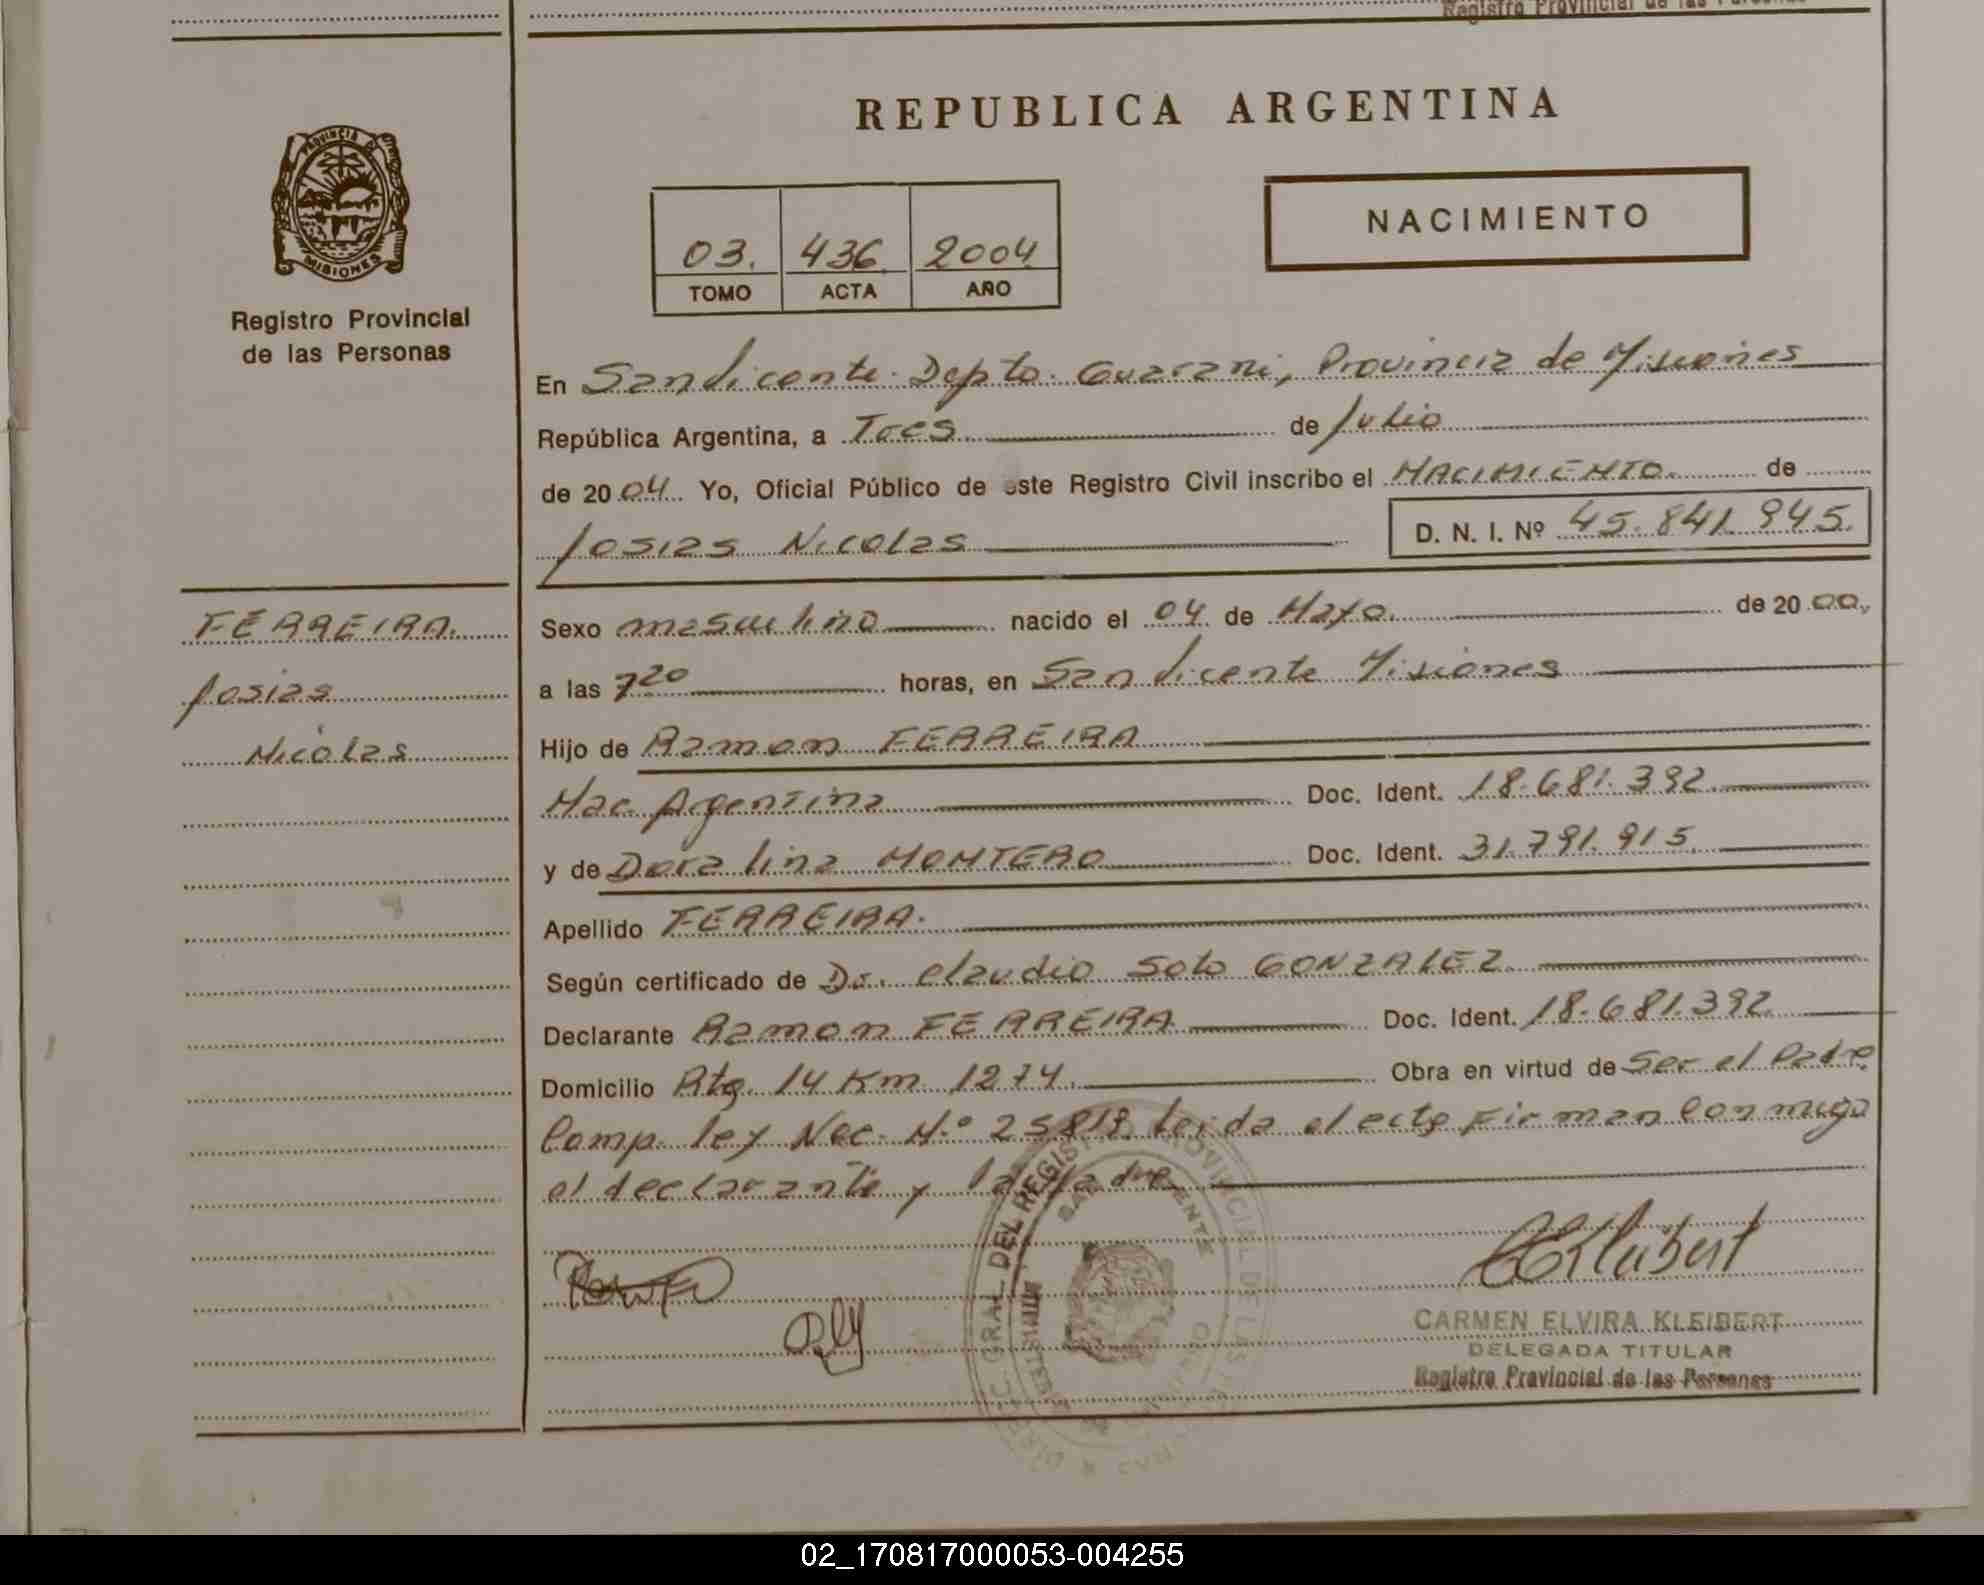 Registro Provincial de las Personas
REPUBLICA ARGENTINA
PROVINCIA DE
MISIONES
Registro Provincial
de las Personas
03. 436. 2004
TOMO ACTA AÑO
NACIMIENTO
En San Vicente Depto. Guarani, Provincia de Misiones
República Argentina, a Tres de Julio
de 2004 Yo, Oficial Público de este Registro Civil inscribo el NACIMIENTO. de
Josias Nicolas D. N. I. Nº 45.841.945.
FERREIRA.
Josias
Nicolas
Sexo masculino nacido el 04 de Mayo. de 2000.
a las 7 20 horas, en San Vicente Misiones
Hijo de Ramon FERREIRA
Nac. Argentina Doc. Ident. 18.681.392.
y de Dora lina MONTERO Doc. Ident. 31.791.915.
Apellido FERREIRA.
Según certificado de Dr. Claudio Soto GONZALEZ.
Declarante Ramon FERREIRA Doc. Ident. 18.681.392.
Domicilio Rta. 14 Km 1274. Obra en virtud de Ser el Padre
Comp. ley Nac. N.º 25819. Leida el acta Firman Conmigo
el declarante y la Madre
DIRECC. GRAL. DEL REGISTRO PROVINCIAL DE LAS PERSONAS
SAN VICENTE
CEKleibert
CARMEN ELVIRA KLEIBERT
DELEGADA TITULAR
Registro Provincial de las Personas
02_170817000053-004255